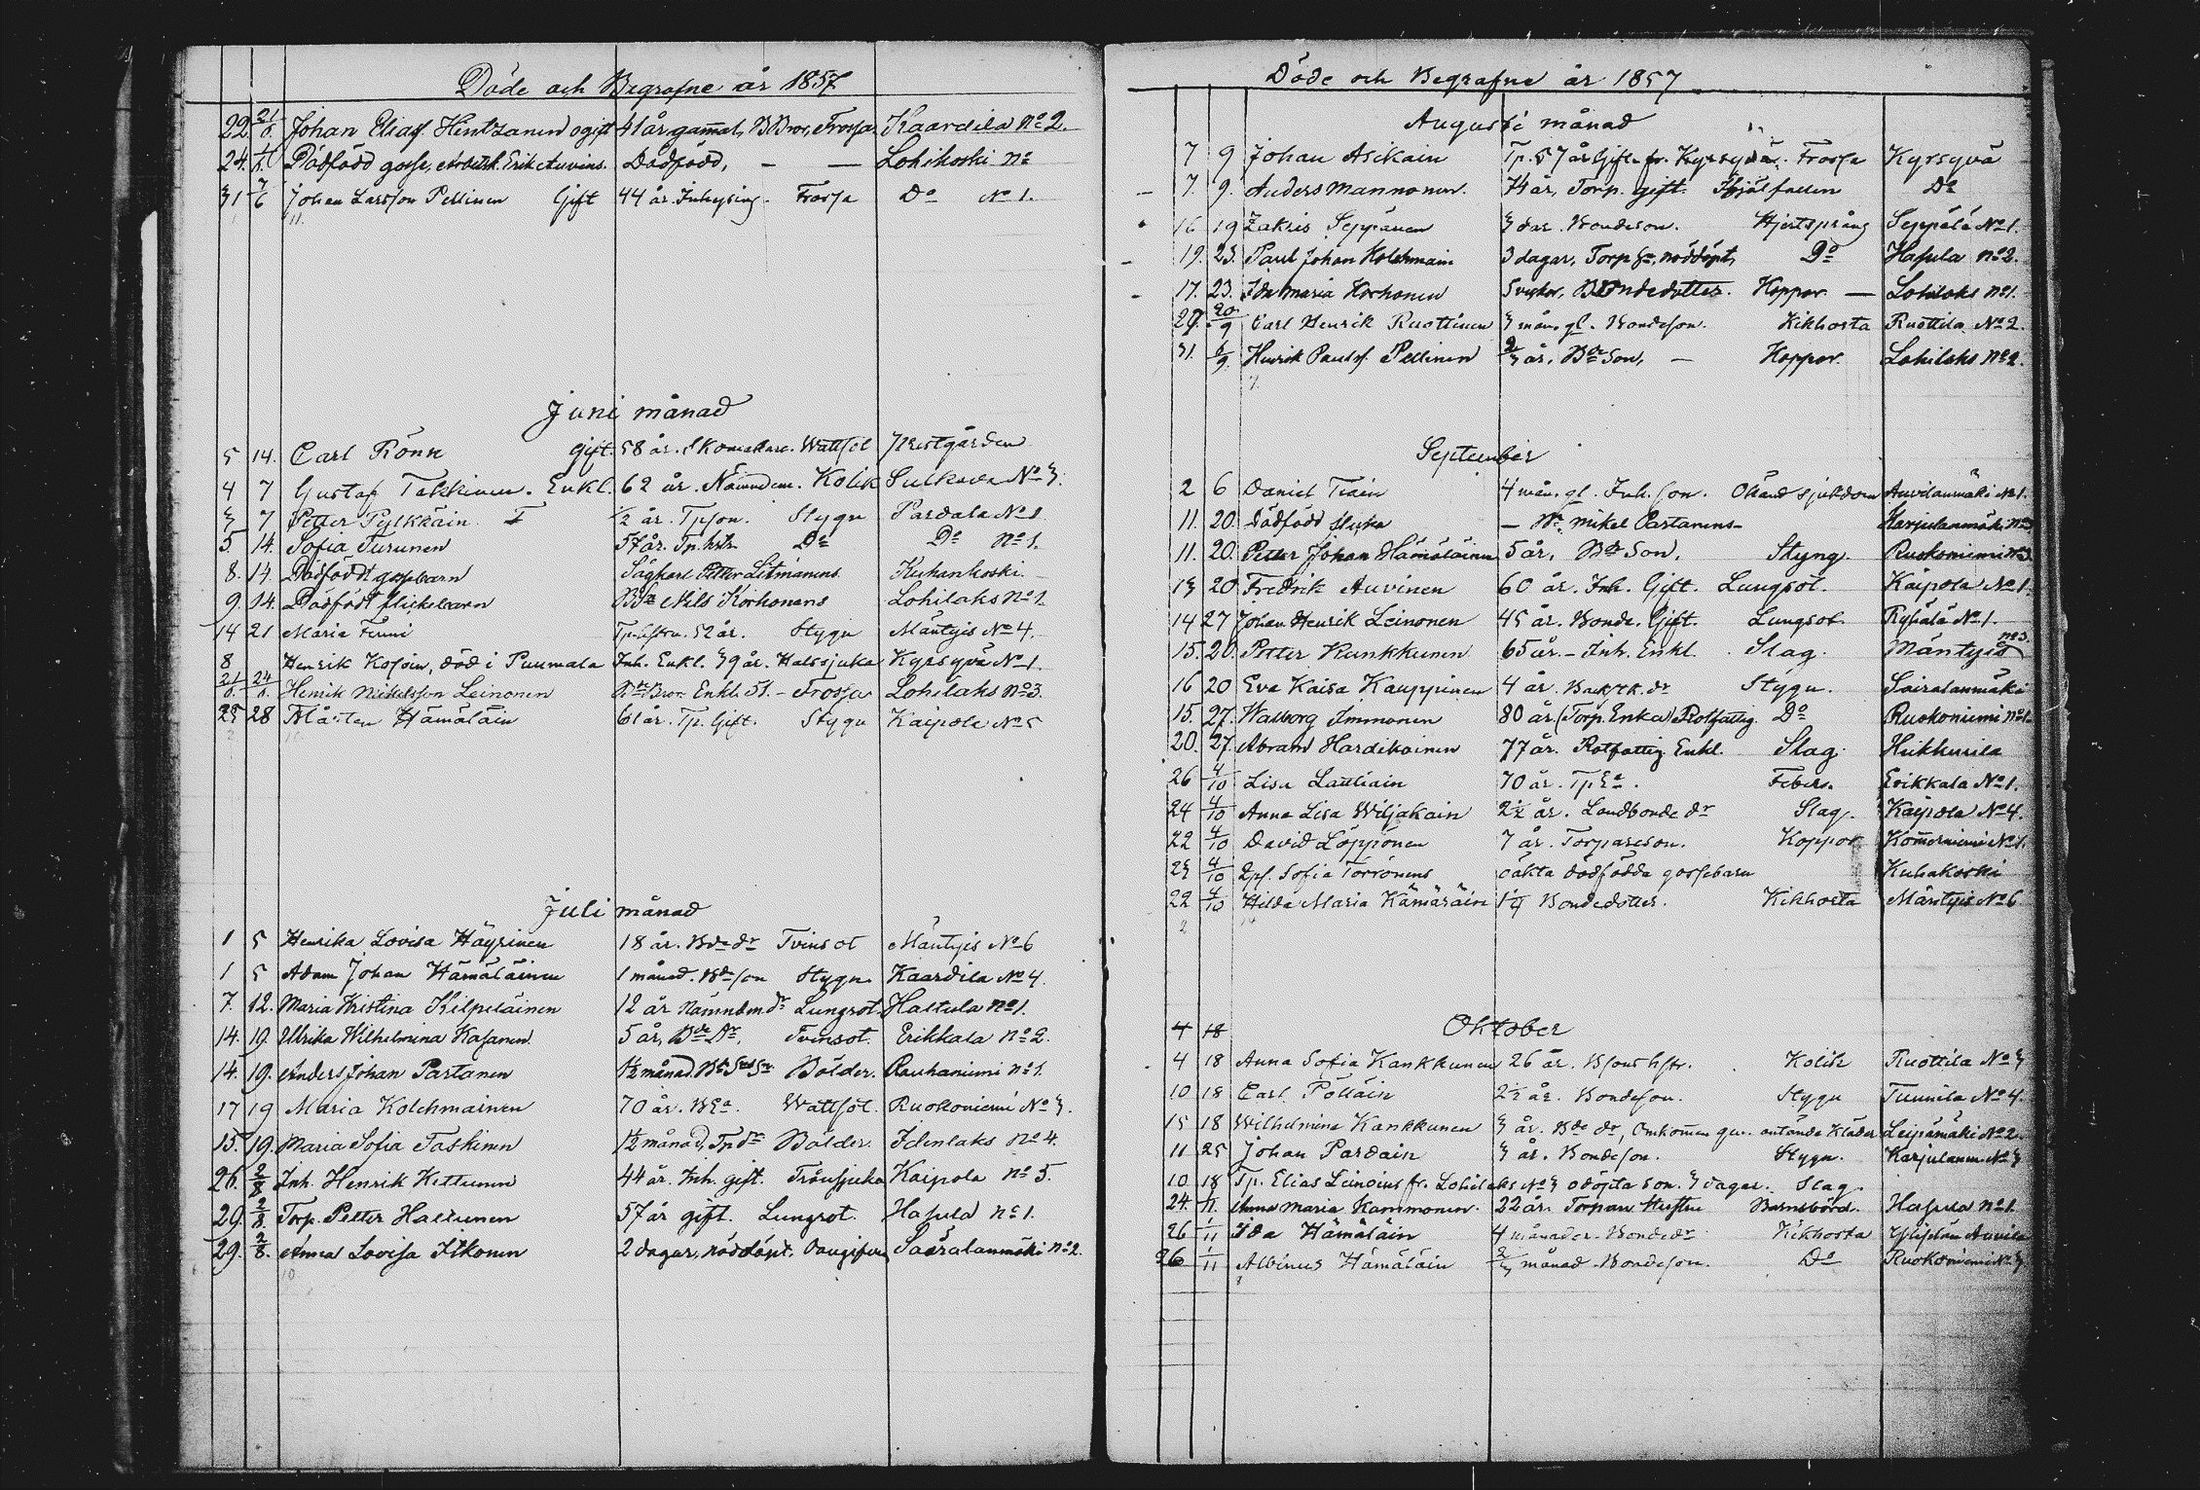 Döde och Begrafne år 1857
22. 21/6. Johan Eliaſſ. Hintzanen ogift 41 år gammal, B Bror, Frossa Kaardila No 2.
24. Dödfödd gosse, Erik Auvins. Dödfödd, — — Lohikoski No
31 7/6 Johan Larsson Pellinen Gift 44 år. Inhysing. Frossa Do No 1.
11.
Juni månad
5 14. Carl Rönn gift. 58 år. Skomakare. Wattsot Prestgården
4 7 Gustaf Takkinen. Enkl. 62 år. Nämndem. Kolik Sulkava No 3.
3 7 Petter Pylkkäin ½ år. Tpson. Stygn Pardala No 1
5. 14. Sofia Turunen 57 år. Tp. hstr. Do Do No 1.
8. 14. Dödfödt gossebarn Sågkarl Petter Litmanens Kuhankoski.
9. 14. Dödfödt flickebarn Nils Korhonens Lohilaks No 1.
14 21 Maria 52 år. Stygn Mäntyis No 4.
8 Henrik Kosoin, död i Puumala Inh. Enkl. 39 år. Halssjuka Kyrsyvä No 1.
21/6. 24/6. Henrik Mikelsson Leinonen Bror Enkl. 51. – Frossa Lohilaks No 3.
25 28 Mårten Hämäläin 61 år. Tp. Gift. Stygn Kaipola No 5
Juli månad
1 5 Henrika Lovisa Häyrinen 18 år. Bde dr Tvinsot Mäntyis No 6
1 5 Adam Johan Hämäläinen 1 månad. Bde son Stygn Kaardila No 4.
7. 12. Maria Kristina Kilpeläinen 12 år Nämndm dr Lungsot. Halttula No 1.
14. 19. Ulrika Wilhelmina Kasanen. 5 år, Bde Dr, Tvinsot. Erikkala No 2.
14. 19. Anders Johan Partanen 1½ månad, Bölder. Rauhaniemi No 1.
17 19 Maria Kolehmainen 70 år. B Ea. Wattsot. Ruokoniemi No 3.
15. 19. Maria Sofia Taskinen 1½ månad, Tp dr Bölder. Idenlaks No 4.
26. 2/8 Inh. Henrik Kettunen 44 år Inh. gift. Tränsjuka Kaipola No 5.
29. 2/8. Torp. Petter Haltunen 57 år gift. Lungsot. Hasula No 1.
29. 2/8. Anna Lovisa Itkonen 2 dagar, nöddöpt. Oangifven Saaralanmäki No 2.
10
Döde och Begrafne år 1857
Augusti månad
7 9 Johan Asikain Tp. 57 år Gift. fr. Kyrsyvä. Frossa Kyrsyvä
7. 9. Anders Mannonen. 74 år, Torp. gift. Ihjälfallen Do
16 19 Zakris Seppänen 3 dar. Bondeson. Hjertsprång Seppälä No 1.
19. 23. Paul Johan Kolehmain 3 dagar, Torp Sn, nöddöpt, Do Hasula No 2.
17. 23. Ida Maria Korhonen 5 veckor, Bondedotter. Koppor. — Lohilaks No 1.
29. 20/9 Carl Henrik Ruottinen 3 mån. gl. Bondeson. Kikhosta Ruottila No 2.
31. 6/9. Henrik Paulsſ. Pellinen 2/3 år, Bde Son, — Koppor. Lohilaks No 2.
7.
September
2 6 Daniel Tiain 4 mån. gl. Inh. son. Okänd sjukdom Auvilanmäki No 1.
11. 20. Dödfödd flicka — Mikel Partanens — Karjulanmäki No
11. 20. Petter Johan Hämäläinen 5 år, Bde Son, Styng. Ruokoniemi No 3.
13 20 Fredrik Auvinen 60 år. Inh. Gift. Lungsot. Kaipola No 1.
14 27 Johan Henrik Leinonen 45 år. Bonde. Gift. Lungsot. No 1.
15. 20. Petter Kunkkunen 65 år. – Inh. Enkl. Slag. Mäntyis No 3.
16 20 Eva Kaisa Kauppinen 4 år. dr Stygn. Sairalanmäki
15. 27. Walborg Immonen 80 år. (Torp. Enka) Rotfattig. Do Ruokoniemi No 1.
20. 27. Abram Hardikainen 77 år. Rotfattig Enkl. Slag. Hikkurila
26 4/10 Lisa Lautiain 70 år. Tp Ea. Febers. Erikkala No 1.
24 4/10 Anna Lisa Wiljakain 2½ år. Landbonde dr Slag. Kaipola No 4.
22 4/10 David Löppönen 7 år. Torpareson. Koppor Kommerniemi No 1.
23 4/10 Sofia Torronens oäkta dödfödda gossebarn Kuhakoski
22 4/10 Hilda Maria Kämäräin 1¼ Bondedotter. Kikhosta Mäntyis No 6.
14
4 18 Oktober
4 18 Anna Sofia Kankkunen 26 år. Kolik Ruottila No 3
10 18 Carl Pölläin 2½ år. Bondeson. Stygn Tunnila No 4.
15 18 Wilhelmina Kankkunen 3 år. Bde dr, Omkommen gen. antända kläder. Leipämäki No 2.
11 25 Johan Pardain 3 år. Bondeson. Stygn. Karjulanm No 3
10 18 Tp. Elias Leinoins fr. Lohilaks No 3 odöpta son. 3 dagar. Slag.
24. 1/11. Anna Maria Kammonen. 22 år. Torpare Hustru Barnsbörd. Hasula No 1.
26 1/11 Ida Hämäläin 4 månader. Bondedr Kikhosta Auvila
26 1/11 Albinus Hämäläin 2/3 månad. Bondeson. Do Ruokoniemi No 3.